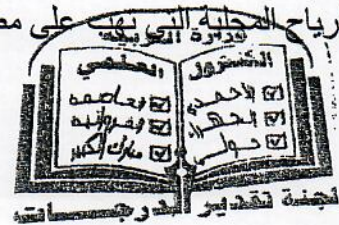 رياح المحلية التي تهب على مص
وزارة التربية
الشئون
العلمي
الأحمدي
الجهراء
حولي
العاصمة
الفروانية
مبارك الكبير
لجنة تقدير الدرجات